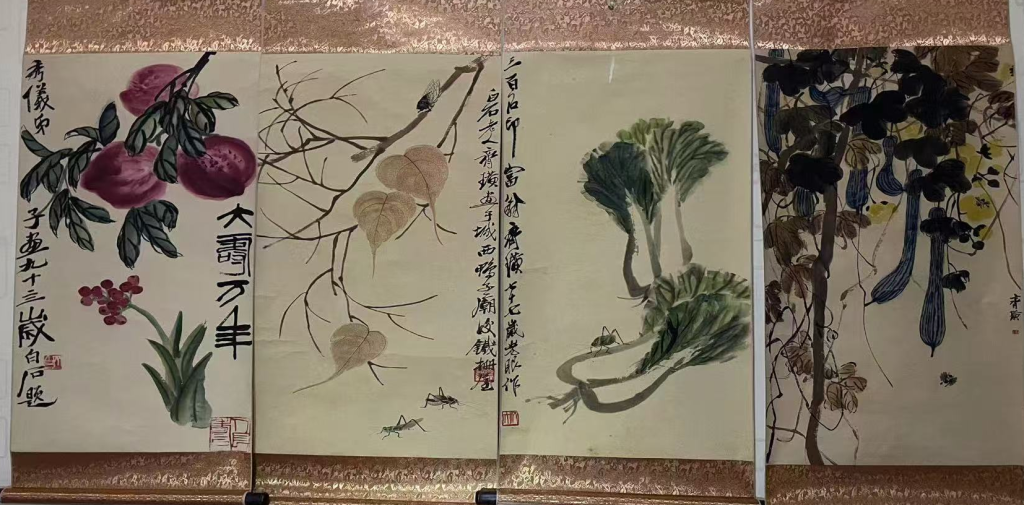 大壽万年
秀儀弟子画九十三歲白石題
白石老人齊璜画于城西鴨子廟後鐵柵屋
三百石印富翁齊璜七十七歲老眼作
齊璜